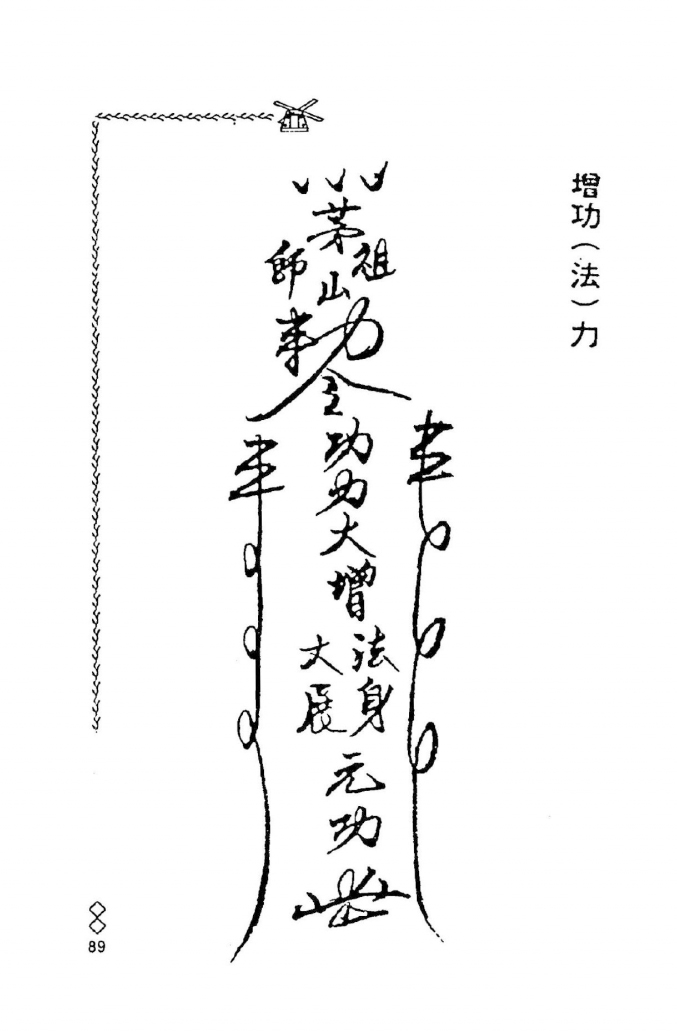 增功（法）力
茅山
祖師
功力大增
法身
大展
元功
89